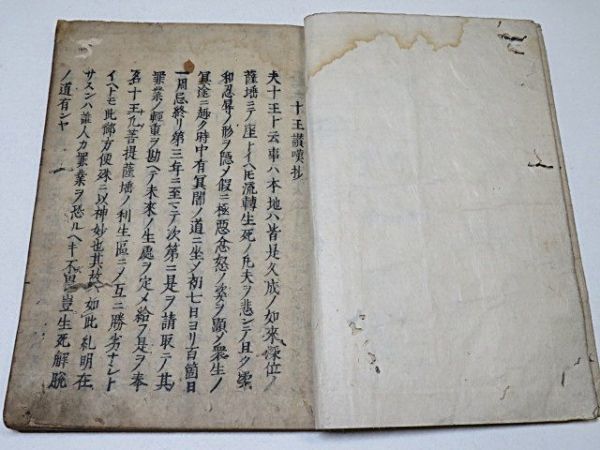 十王讃嘆抄
夫十王ト云事ハ本地ハ皆是久成ノ如來深位ノ
薩埵ニテ座トイヘモ流轉生死ノ凡夫ヲ悲ンテ且ク
和忍辱ノ形ヲ隱メ假ニ極惡忿怒ノ姿ヲ顯メ衆生ノ
冥途ニ趣ク時中有冥闇ノ道ニ坐メ初七日ヨリ百箇日
一周忌終リ第三年ニ至マテ次第ニ是ヲ請取テ其
罪業ノ輕重ヲ勘ヘテ未來ノ生處ヲ定メ給フ是ヲ奉
名十王凡菩提薩埵ノ利生區ニメ互ニ勝劣ナシト
イヘトモ此御方便殊ニ以神妙也其故如此札明在
サスンハ誰人カ罪業ヲ恐ルヘキ不恐豈生死解脫
ノ道有ンヤ